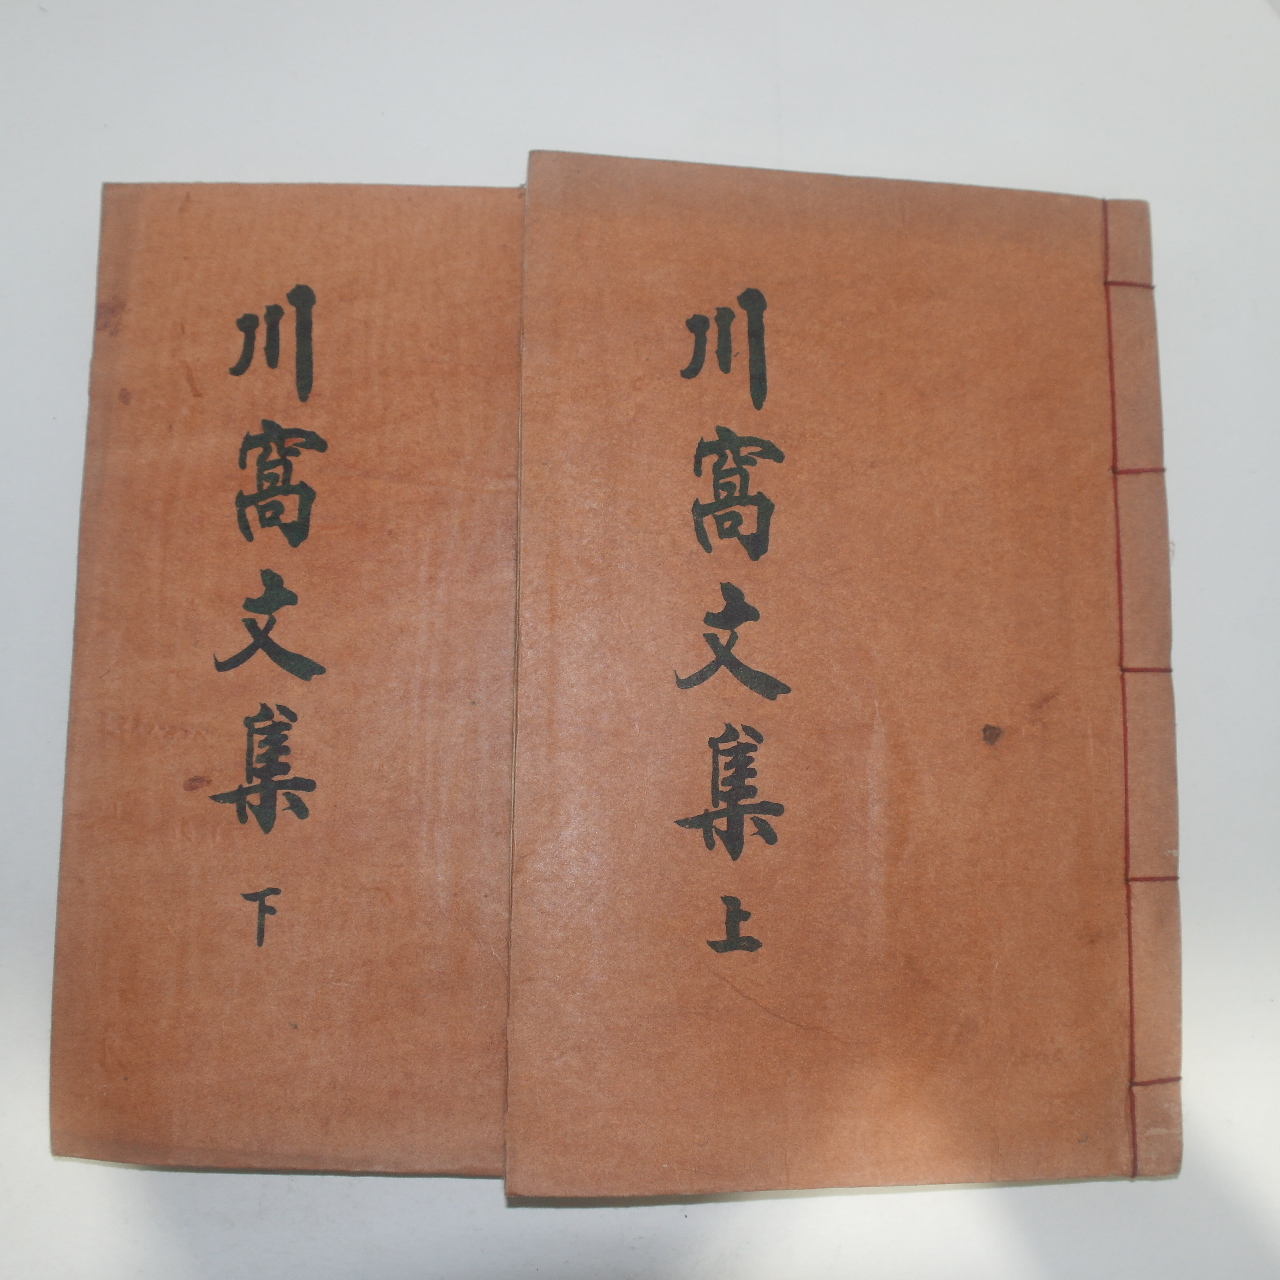 川窩文集 上
川窩文集 下